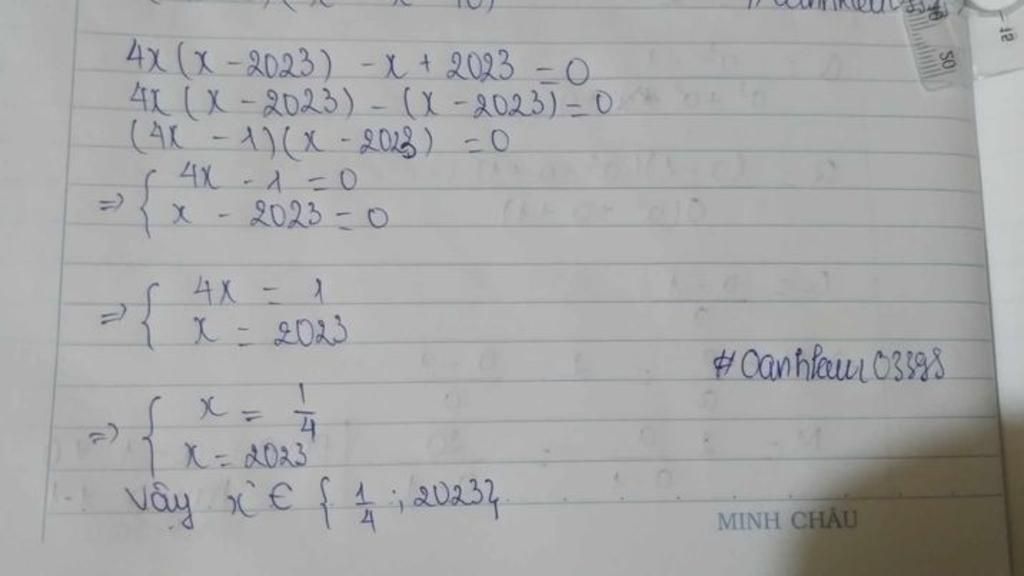 4x(x - 2023) - x + 2023 = 0
4x(x - 2023) - (x - 2023) = 0
(4x - 1)(x - 2023) = 0
=> { 4x - 1 = 0
x - 2023 = 0
=> { 4x = 1
x = 2023
=> { x = 1/4
x = 2023
Vậy x ∈ { 1/4 ; 2023}
MINH CHÂU